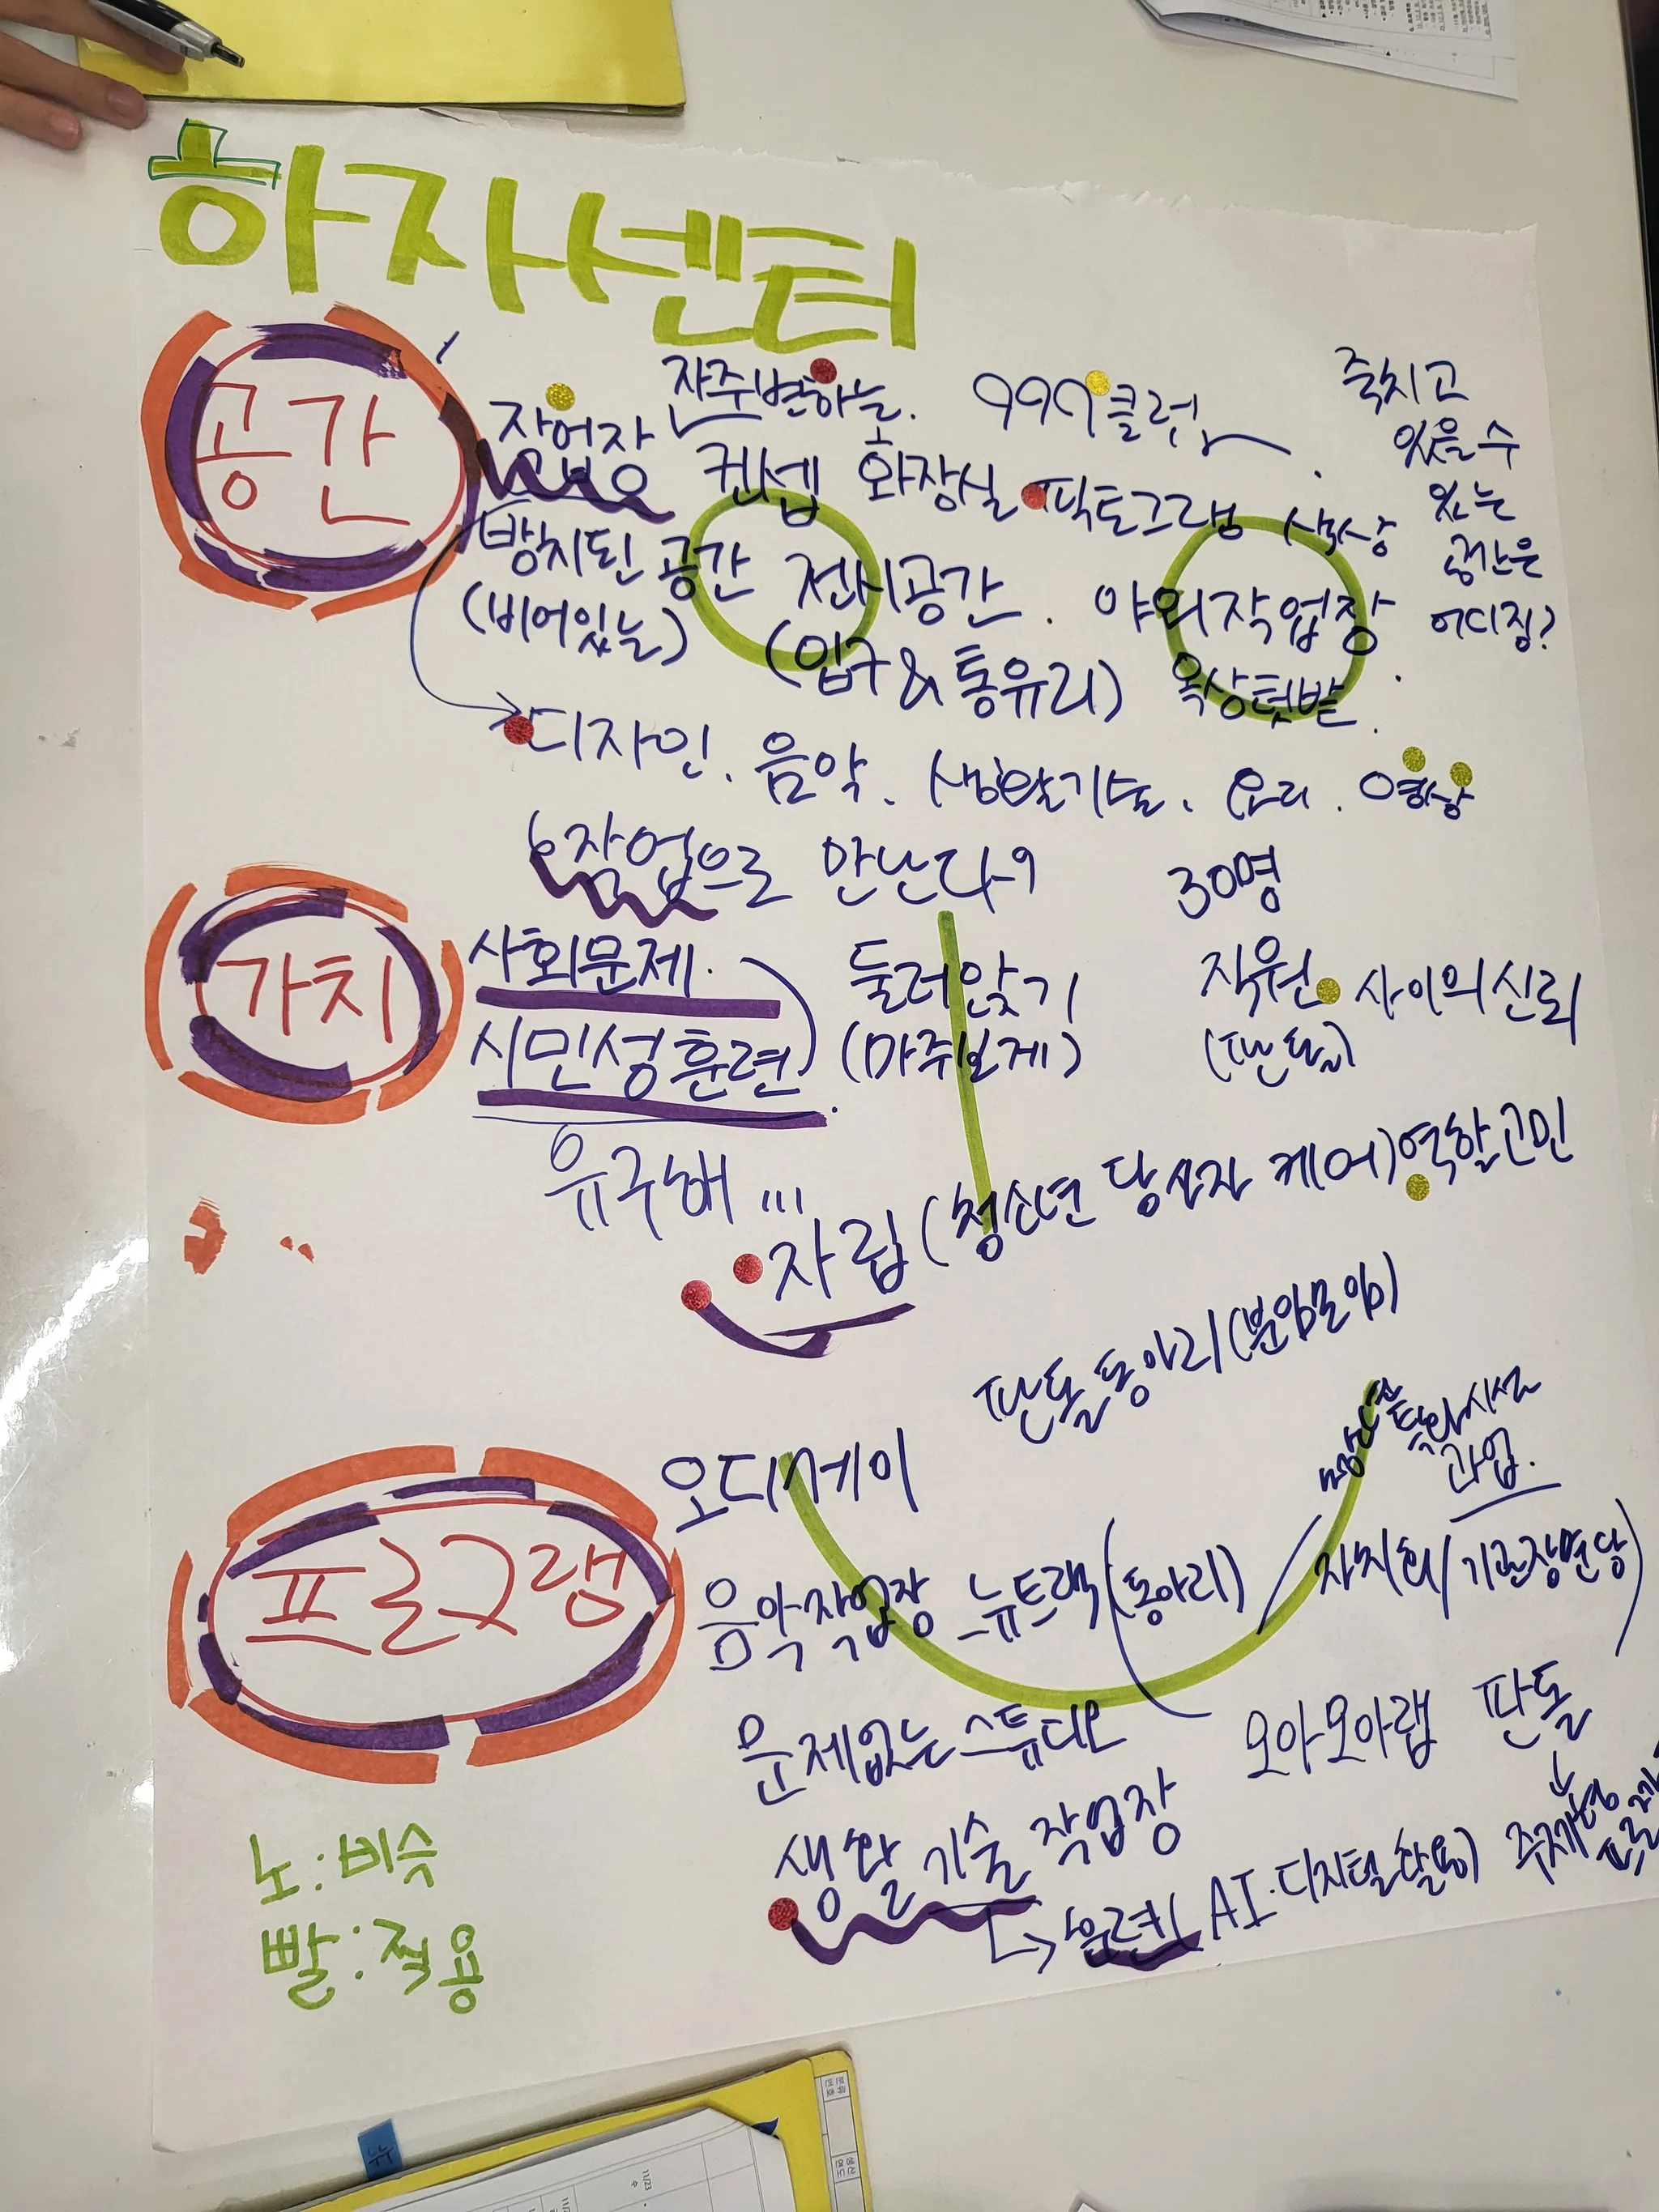 하자센터
공간
작업장 자주변하는. 999클럽
컨셉 화장실 픽토그램 색상
죽치고
있을수
있는
공간은
어디징?
방치된 공간 전시공간. 야외작업장
(비어있는) (입구&통유리) 옥상텃밭.
디자인. 음악. 생활기술. 요리. 영상
작업으로 만난다 30명
가치
사회문제. 둘러앉기 직원 사이의신뢰
시민성훈련. (마주보게) (판돌)
유구배 ...
자립 (청소년 당사자 케어) 역할고민
판돌동아리(분임모임)
프로그램
오디세이
과업.
음악작업장 뉴트랙(동아리) / 자치회/기관장면담
문제없는스튜디오 오아오아랩 판돌
생활기술 작업장
AI.디지털활용
노:비슷
빨:적용